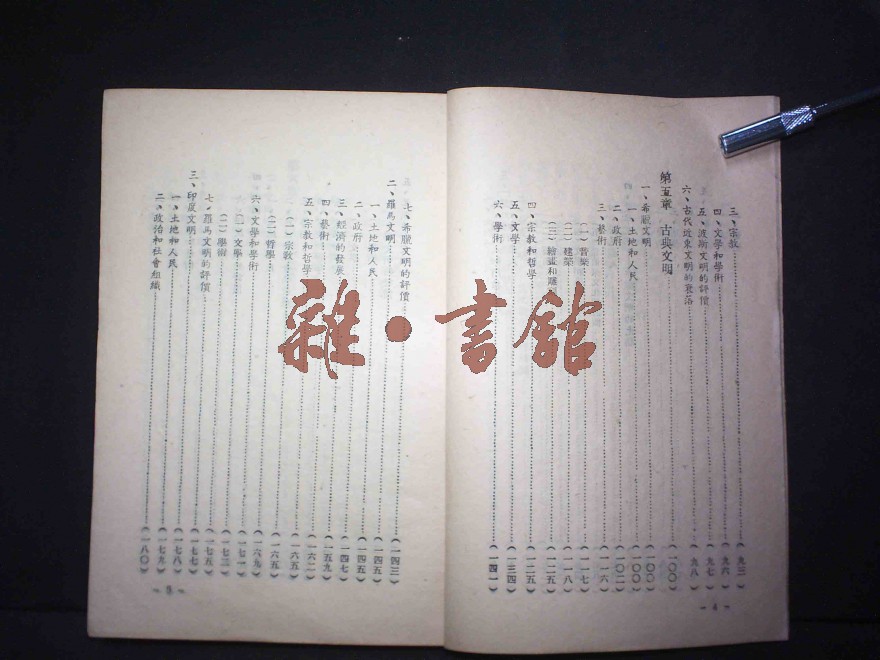 三、宗教……(九三)
四、文學和學術……(九六)
五、波斯文明的評價……(九七)
六、古代近東文明的衰落……(九八)
第五章 古典文明……(一〇〇)
一、希臘文明……(一〇〇)
一、土地和人民……(一〇〇)
二、政府……(一〇二)
三、藝術……(一一六)
(一)音樂……(一一七)
(二)建築……(一一八)
(三)繪畫和雕……(一二五)
四、宗教和哲學……(一二五)
五、文學……(一三四)
六、學術……(一四一)
- 4 -
七、希臘文明的評價……(一四三)
二、羅馬文明……(一四五)
一、土地和人民……(一四五)
二、政府……(一四五)
三、經濟的發展……(一四七)
四、藝術……(一五九)
五、宗教和哲學……(一六二)
(一)宗教……(一六五)
(二)哲學……(一六五)
六、文學和學術……(一六九)
(一)文學……(一七一)
(二)學術……(一七三)
七、羅馬文明的評價……(一七五)
三、印度文明……(一七七)
一、土地和人民……(一七八)
二、政治和社會組織……(一八〇)
- 5 -
雜·書館